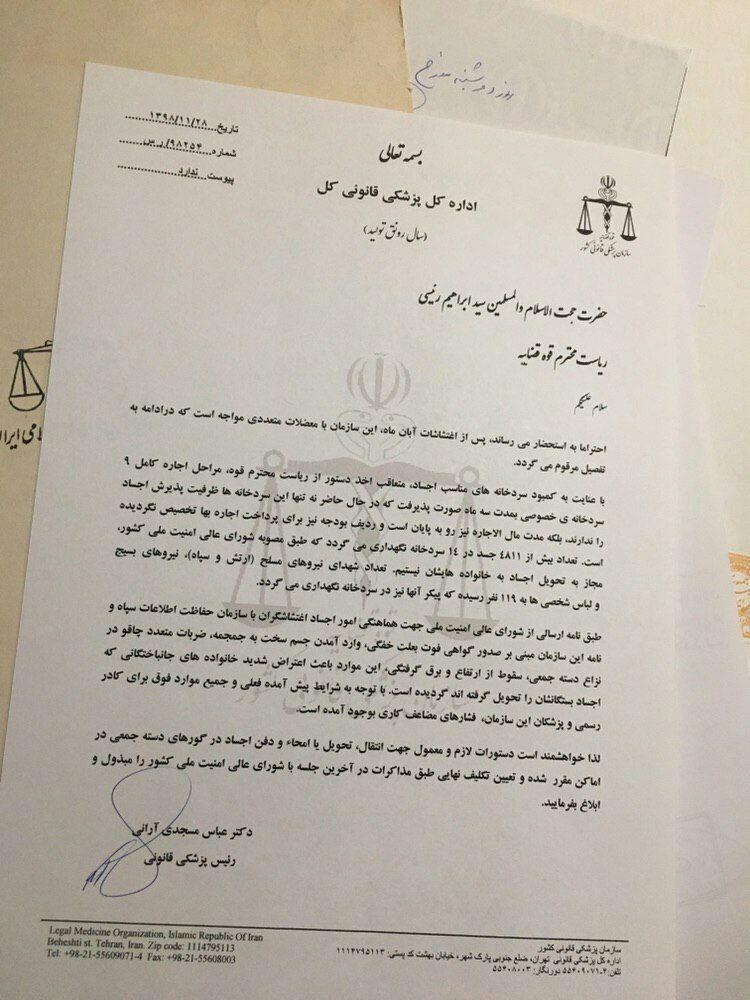 روز دوشنبه مورخ
تاریخ....۱۳۹۸/۱۱/۲۸
شماره....۹۸۲۵۴/ر.س
پیوست....ندارد
بسمه تعالی
اداره کل پزشکی قانونی کل
(سال رونق تولید)
قوه قضاییه
سازمان پزشکی قانونی کشور
حضرت حجت الاسلام والمسلمین سید ابراهیم رئیسی
ریاست محترم قوه قضاییه
سلام علیکم
احتراما به استحضار می رساند، پس از اغتشاشات آبان ماه، این سازمان با معضلات متعددی مواجه است که درادامه به
تفصیل مرقوم می گردد.
با عنایت به کمبود سردخانه های مناسب اجساد، متعاقب اخذ دستور از ریاست محترم قوه، مراحل اجاره کامل ۹
سردخانه ی خصوصی بمدت سه ماه صورت پذیرفت که در حال حاضر نه تنها این سردخانه ها ظرفیت پذیرش اجساد
را ندارند، بلکه مدت مال الاجاره نیز رو به پایان است و ردیف بودجه نیز برای پرداخت اجاره بها تخصیص نگردیده
است. تعداد بیش از ۴۸۱۱ جسد در ۱۴ سردخانه نگهداری می گردد که طبق مصوبه شورای عالی امنیت ملی کشور،
مجاز به تحویل اجساد به خانواده هایشان نیستیم. تعداد شهدای نیروهای مسلح (ارتش و سپاه)، نیروهای بسیج
و لباس شخصی ها به ۱۱۹ نفر رسیده که پیکر آنها نیز در سردخانه نگهداری می گردد.
طبق نامه ارسالی از شورای عالی امنیت ملی جهت هماهنگی امور اجساد اغتشاشگران با سازمان حفاظت اطلاعات سپاه و
نامه این سازمان مبنی بر صدور گواهی فوت بعلت خفگی، وارد آمدن جسم سخت به جمجمه، ضربات متعدد چاقو در
نزاع دسته جمعی، سقوط از ارتفاع و برق گرفتگی، این موارد باعث اعتراض شدید خانواده های جانباختگانی که
اجساد بستگانشان را تحویل گرفته اند گردیده است. با توجه به شرایط پیش آمده فعلی و جمیع موارد فوق برای کادر
رسمی و پزشکان این سازمان، فشارهای مضاعف کاری بوجود آمده است.
لذا خواهشمند است دستورات لازم و معمول جهت انتقال، تحویل یا امحاء و دفن اجساد در گورهای دسته جمعی در
اماکن مقرر شده و تعیین تکلیف نهایی طبق مذاکرات در آخرین جلسه با شورای عالی امنیت ملی کشور را مبذول و
ابلاغ بفرمایید.
دکتر عباس مسجدی آرانی
رئیس پزشکی قانونی
Legal Medicine Organization, Islamic Republic Of Iran
Beheshti st. Tehran, Iran. Zip code: 1114795113
Tel: +98-21-55609071-4 Fax: +98-21-55608003
سازمان پزشکی قانونی کشور
اداره کل پزشکی قانونی تهران، ضلع جنوبی پارک شهر، خیابان بهشت کد پستی: ۱۱۱۴۷۹۵۱۱۳
تلفن:۴-۵۵۶۰۹۰۷۱ دورنگار: ۵۵۶۰۸۰۰۳